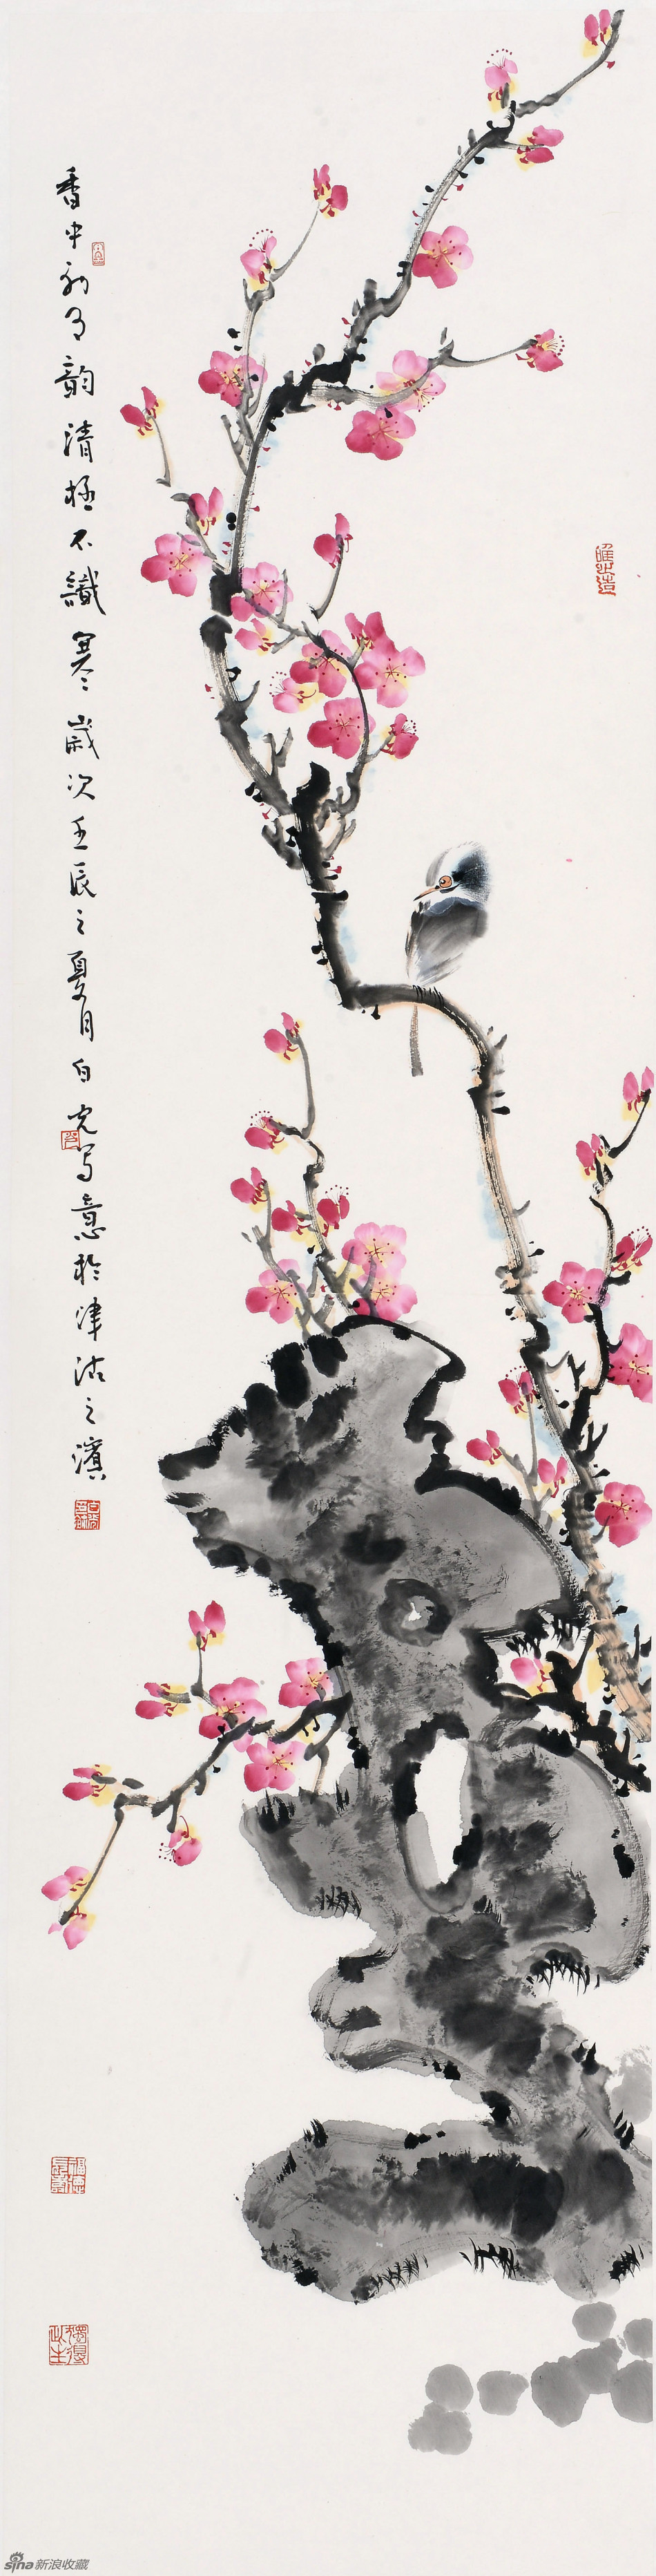 香中别有韵清極不識寒歲次壬辰之夏月白光写意於津沽之濱
sina新浪收藏